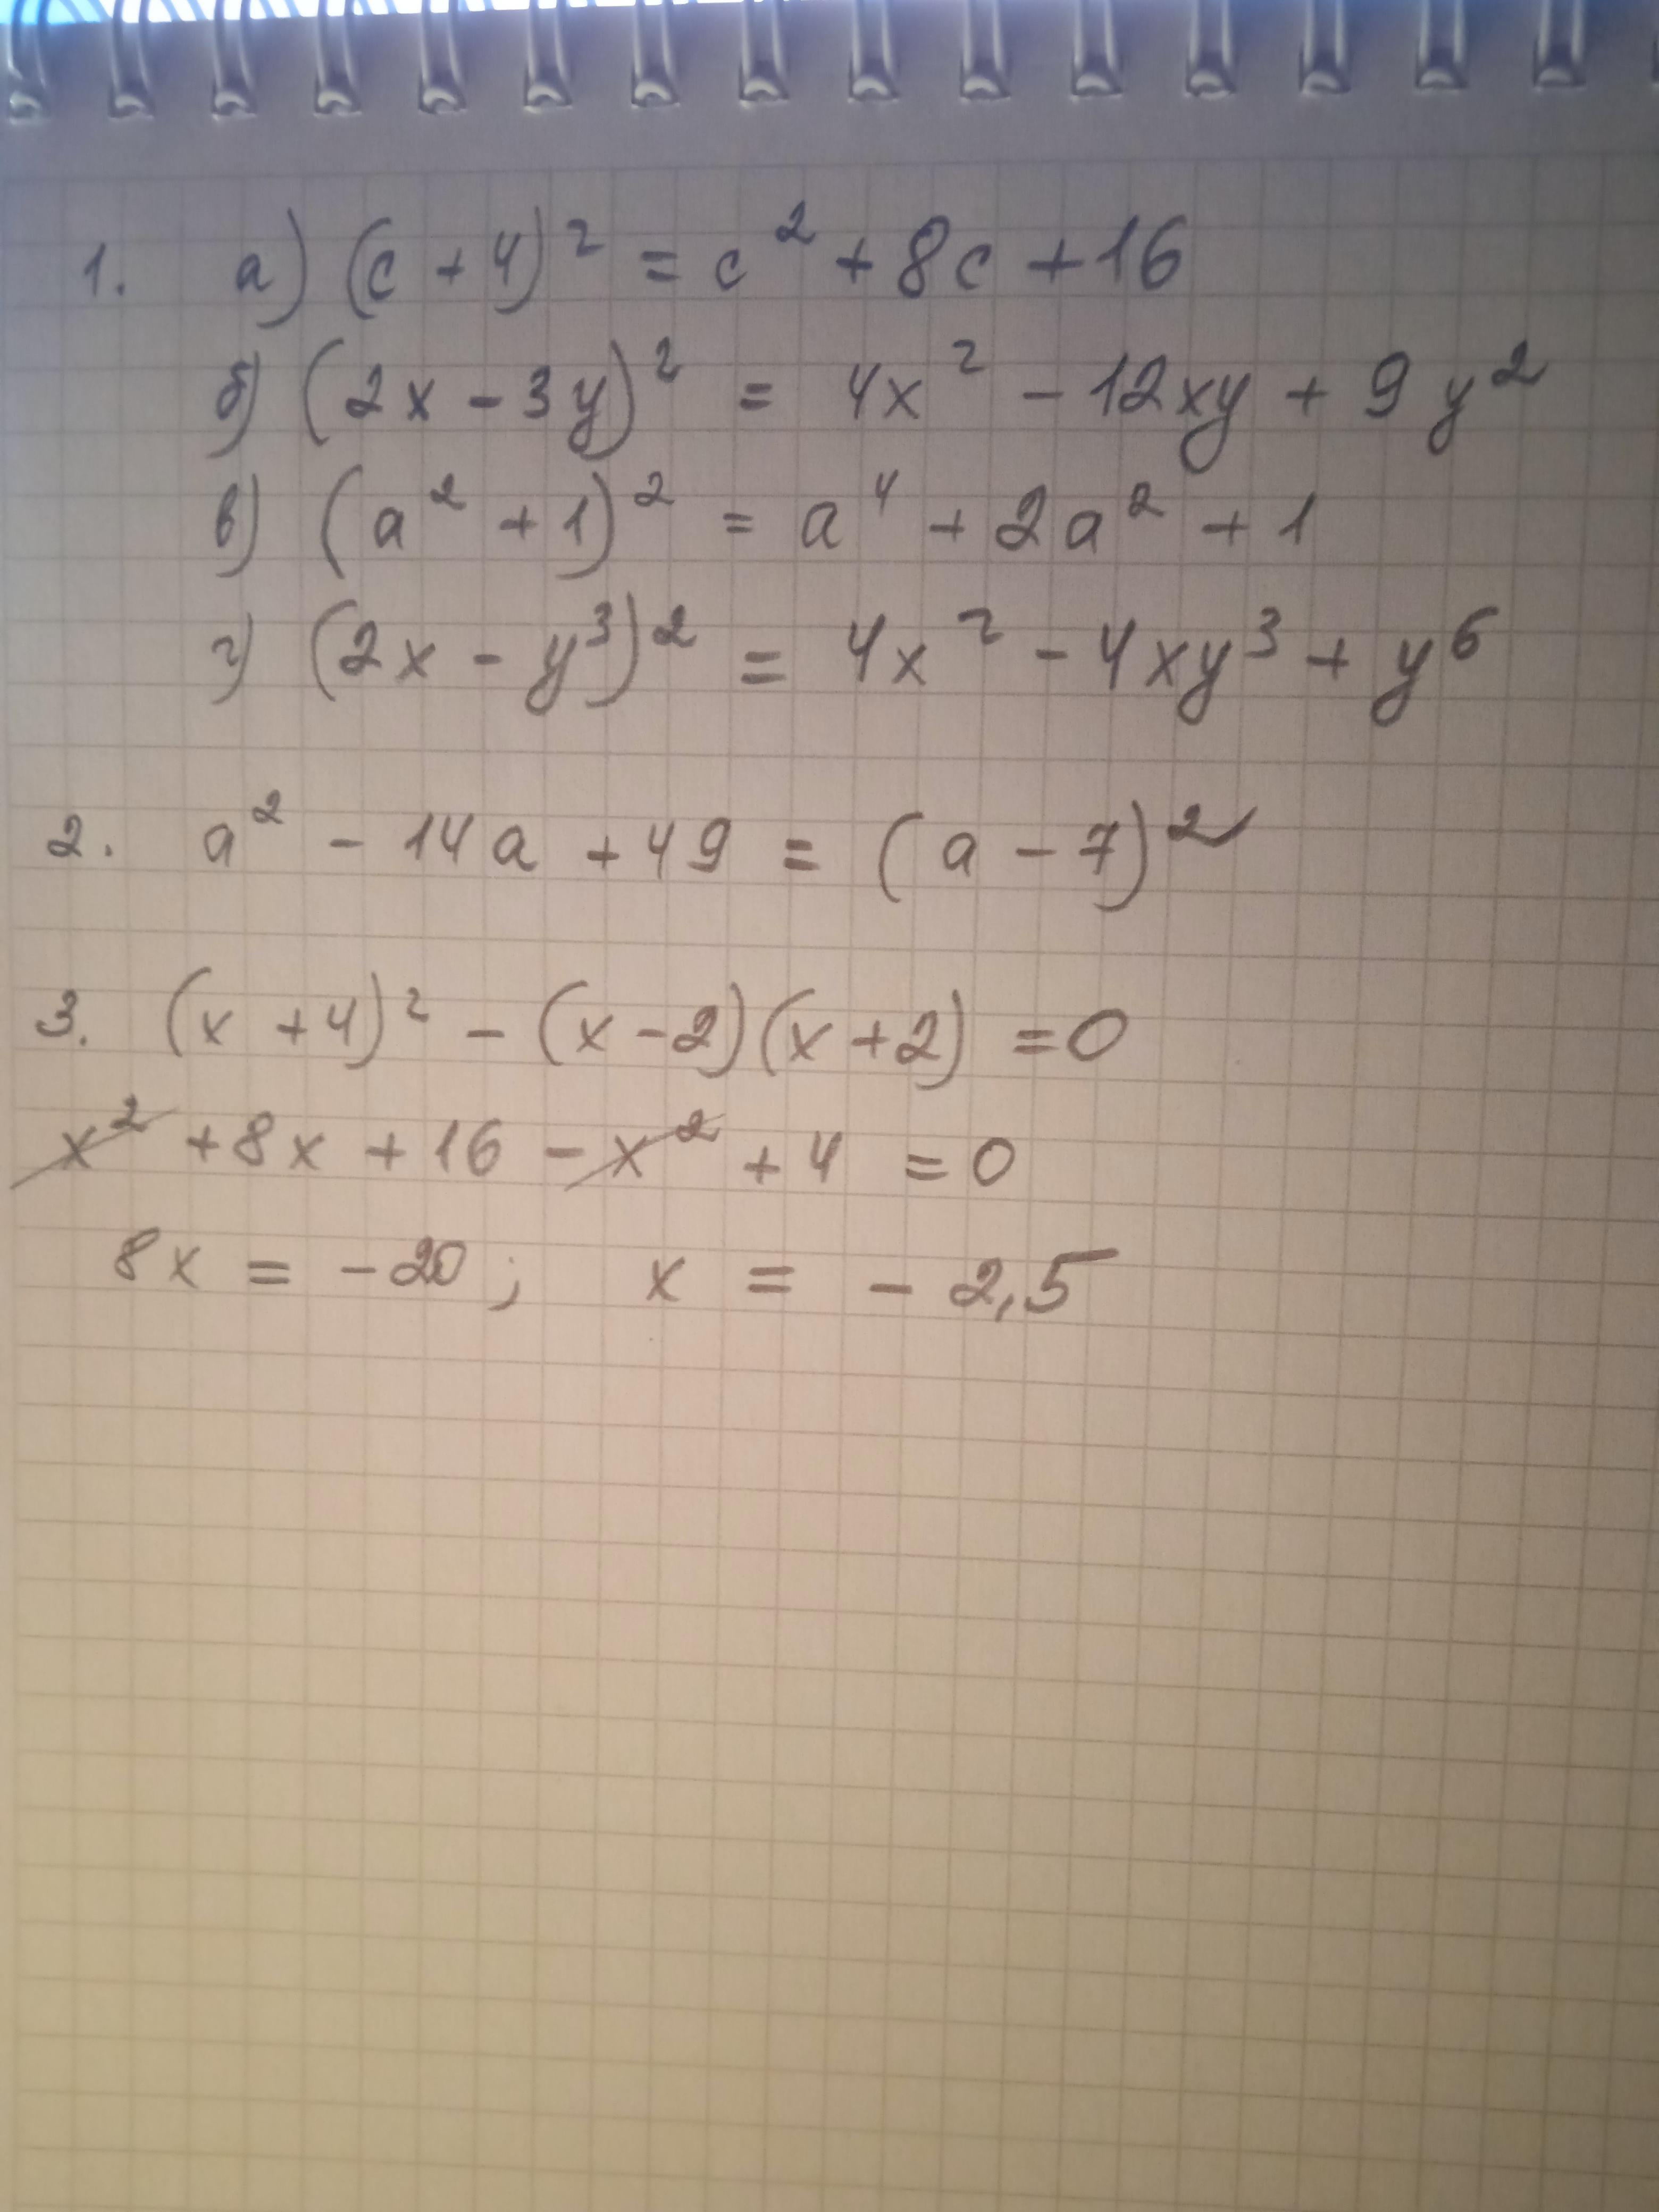 1. а) (c + 4)² = c² + 8c + 16
б) (2x - 3y)² = 4x² - 12xy + 9y²
в) (a² + 1)² = a⁴ + 2a² + 1
г) (2x - y³)² = 4x² - 4xy³ + y⁶
2. a² - 14a + 49 = (a - 7)²
3. (x + 4)² - (x - 2)(x + 2) = 0
x² + 8x + 16 - x² + 4 = 0
8x = -20; x = -2,5